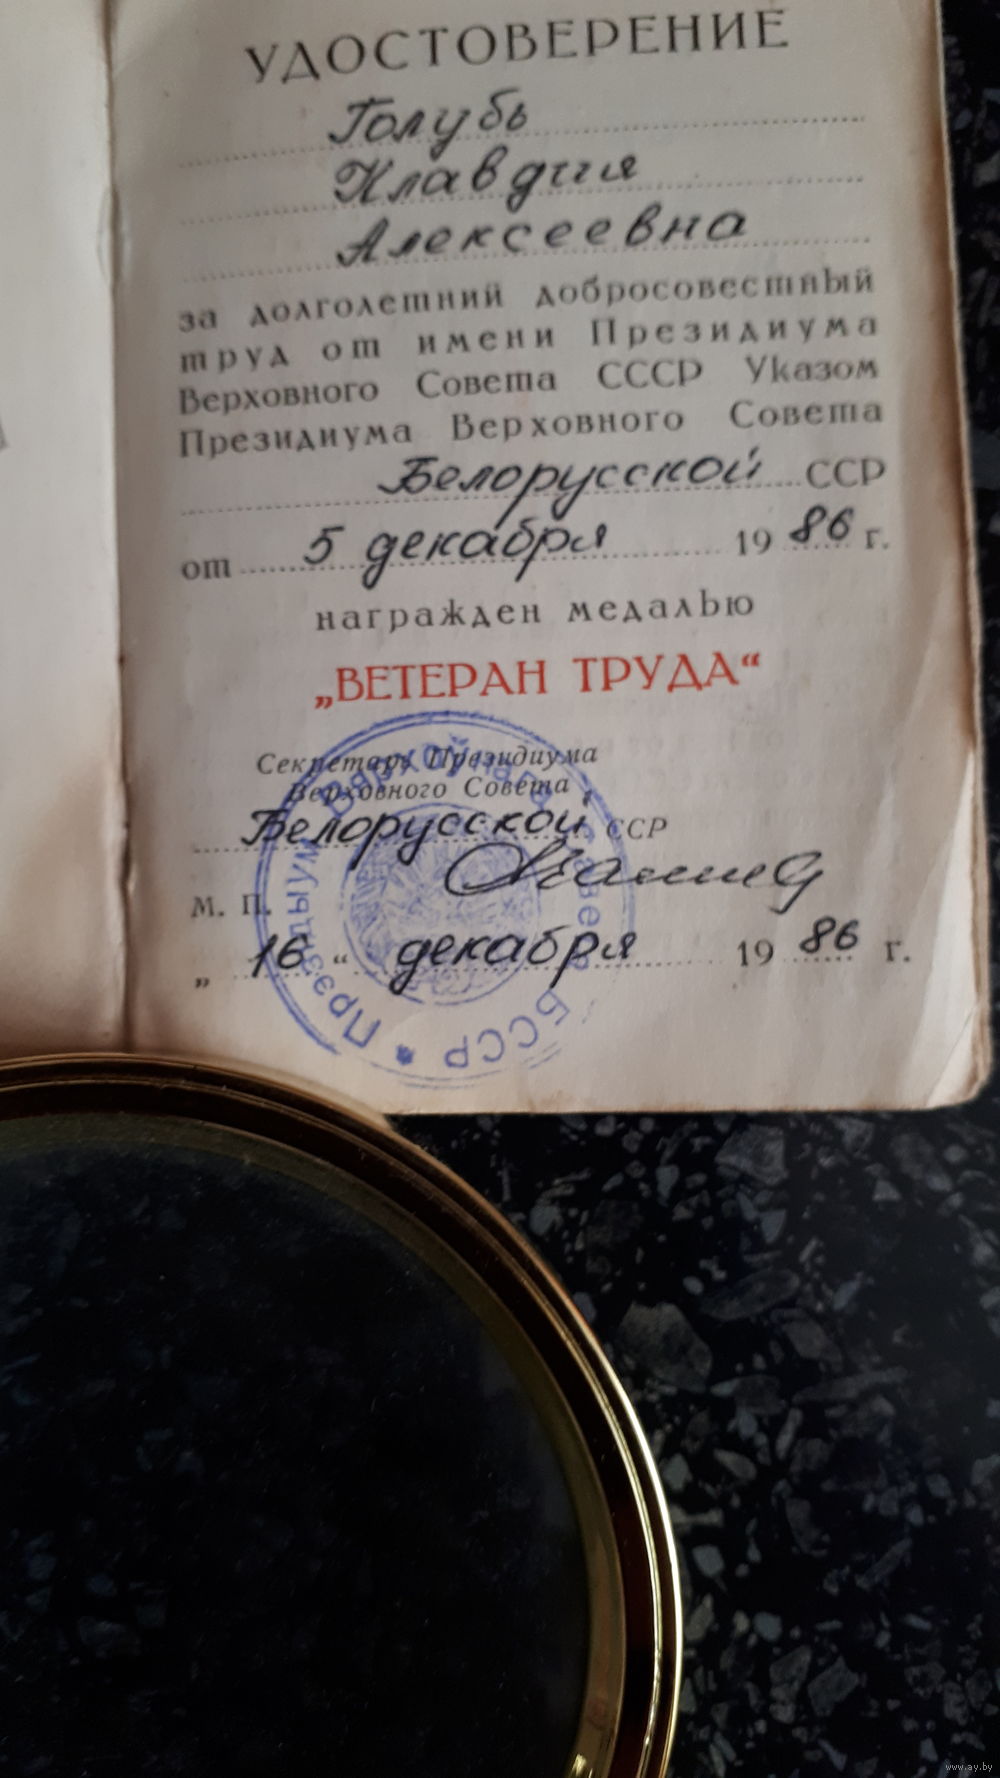 УДОСТОВЕРЕНИЕ
Голубь
Клавдия
Алексеевна
за долголетний добросовестный
труд от имени Президиума
Верховного Совета СССР Указом
Президиума Верховного Совета
Белорусской ССР
от 5 декабря 1986 г.
награжден медалью
„ВЕТЕРАН ТРУДА“
Секретарь Президиума
Верховного Совета
Белорусской ССР
М. П.
„16“ декабря 1986 г.
Прэзідыум Вярхоўнага Савета БССР
www.ay.by